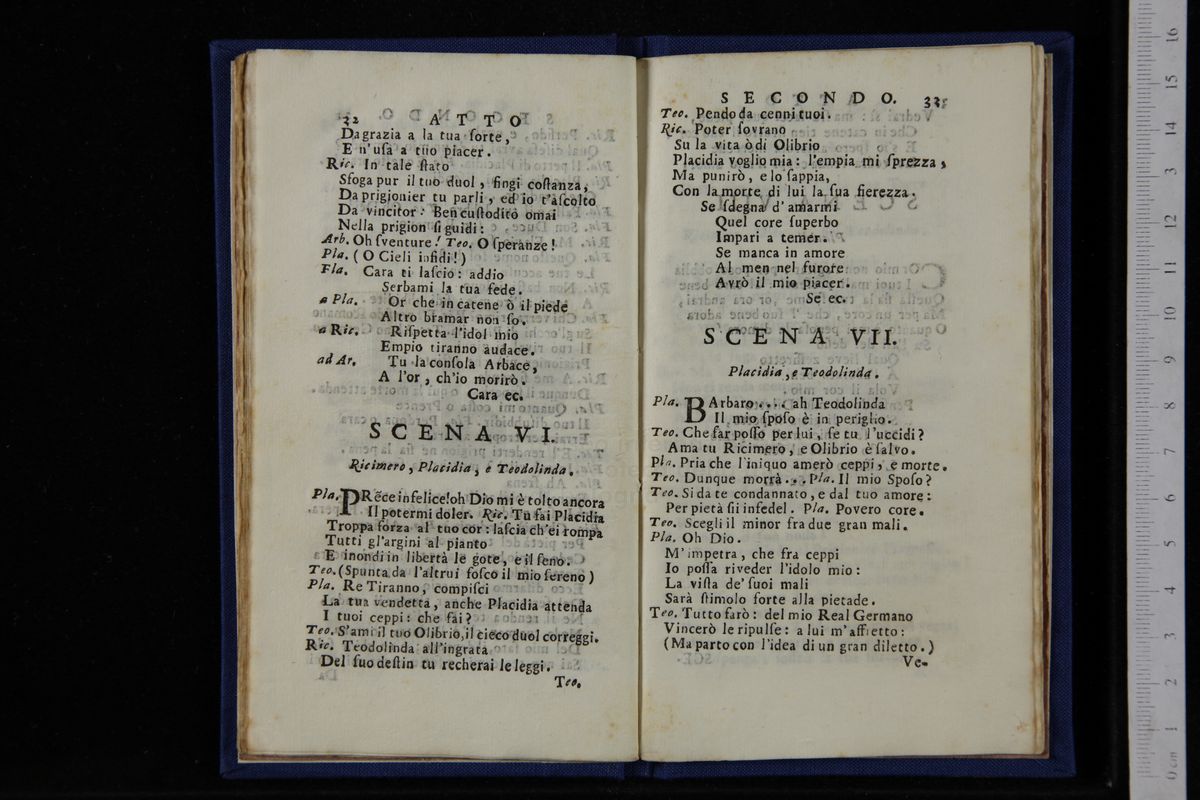 32 A T T O
Da grazia a la tua ſorte,
E n'uſa a tuo piacer.
Ric. In tale ſtato
Sfoga pur il tuo duol, fingi coſtanza,
Da prigionier tu parli, ed io t'aſcolto
Da vincitor: Ben cuſtodito omai
Nella prigion ſi guidi:
Arb. Oh ſventure! Teo. O ſperanze!
Pla. (O Cieli infidi!)
Fla. Cara ti laſcio: addio
Serbami la tua fede.
a Pla. Or che in catene ò il piede
Altro bramar non ſo.
a Ric. Riſpetta l'idol mio
Empio tiranno audace.
ad Ar. Tu la conſola Arbace,
A l'or, ch'io morirò.
Cara ec.
S C E N A VI.
Ricimero, Placidia, e Teodolinda.
Pla. PRẽce infelice!oh Dio mi è tolto ancora
Il potermi doler. Ric. Tu ſai Placidia
Troppa forza al tuo cor: laſcia ch'ei rompa
Tutti gl'argini al pianto
E inondi in libertà le gote, e il ſeno.
Teo. (Spunta da l'altrui foſco il mio ſereno)
Pla. Re Tiranno, compiſci
La tua vendetta, anche Placidia attenda
I tuoi ceppi: che fai?
Teo. S'ami il tuo Olibrio, il cieco duol correggi.
Ric. Teodolinda all'ingrata
Del ſuo deſtin tu recherai le leggi.
Teo.
S E C O N D O. 33
Teo. Pendo da cenni tuoi.
Ric. Poter ſovrano
Su la vita ò di Olibrio
Placidia voglio mia: l'empia mi ſprezza,
Ma punirò, e lo ſappia,
Con la morte di lui la ſua fierezza.
Se ſdegna d'amarmi
Quel core ſuperbo
Impari a temer.
Se manca in amore
Al men nel furore
Avrò il mio piacer.
Se ec.
S C E N A VII.
Placidia, e Teodolinda.
Pla. BArbaro.... ah Teodolinda
Il mio ſpoſo è in periglio.
Teo. Che far poſſo per lui, ſe tu l'uccidi?
Ama tu Ricimero, e Olibrio è ſalvo.
Pla. Pria che l'iniquo amerò ceppi, e morte.
Teo. Dunque morrà... Pla. Il mio Spoſo?
Teo. Si da te condannato, e dal tuo amore:
Per pietà ſii infedel. Pla. Povero core.
Teo. Scegli il minor fra due gran mali.
Pla. Oh Dio.
M'impetra, che fra ceppi
Io poſſa riveder l'idolo mio:
La viſta de' ſuoi mali
Sarà ſtimolo forte alla pietade.
Teo. Tutto farò: del mio Real Germano
Vincerò le ripulſe: a lui m'affretto:
(Ma parto con l'idea di un gran diletto.)
Ve-